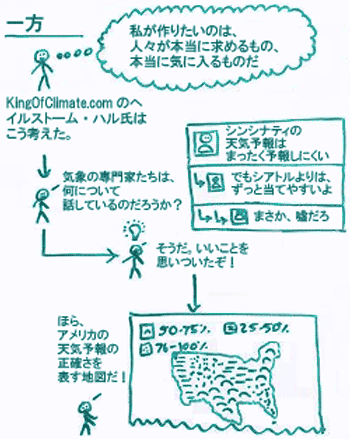 一方
私が作りたいのは、
人々が本当に求めるもの、
本当に気に入るものだ
KingOfClimate.com のヘ
イルストーム・ハル氏は
こう考えた。
シンシナティの
天気予報は
まったく予報しにくい
でもシアトルよりは、
ずっと当てやすいよ
まさか、嘘だろ
気象の専門家たちは、
何について
話しているのだろうか？
そうだ。いいことを
思いついたぞ！
ほら、
アメリカの
天気予報の
正確さを
表す地図だ！
50-75% 25-50%
76-100%